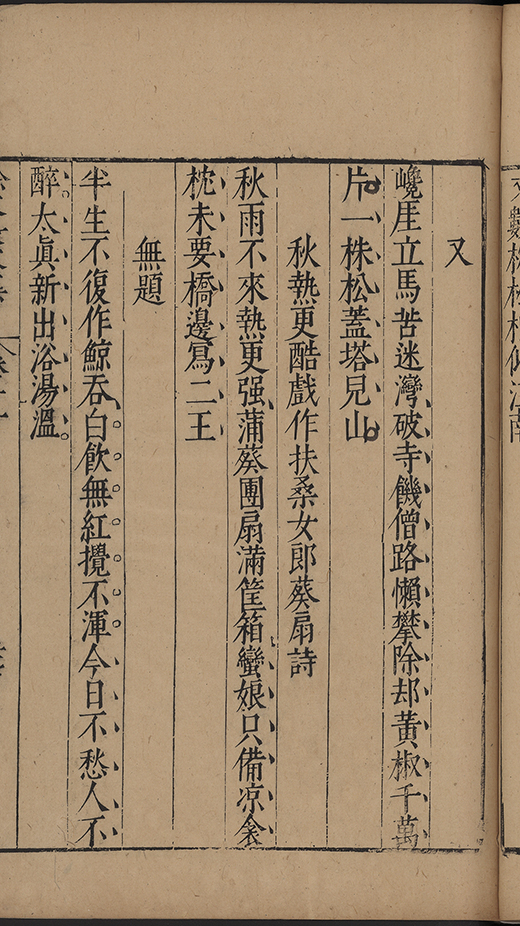 又
巉厓立馬苦迷灣破寺饑僧路懶攀除却黃椒千萬
片一株松蓋塔見山
秋熱更酷戲作扶桑女郎葵扇詩
秋雨不來熱更强蒲葵團扇滿筐箱蠻娘只備凉衾
枕未要橋邊寫二王
無題
半生不復作鯨吞白飮無紅攪不渾今日不愁人不
醉太眞新出浴湯溫